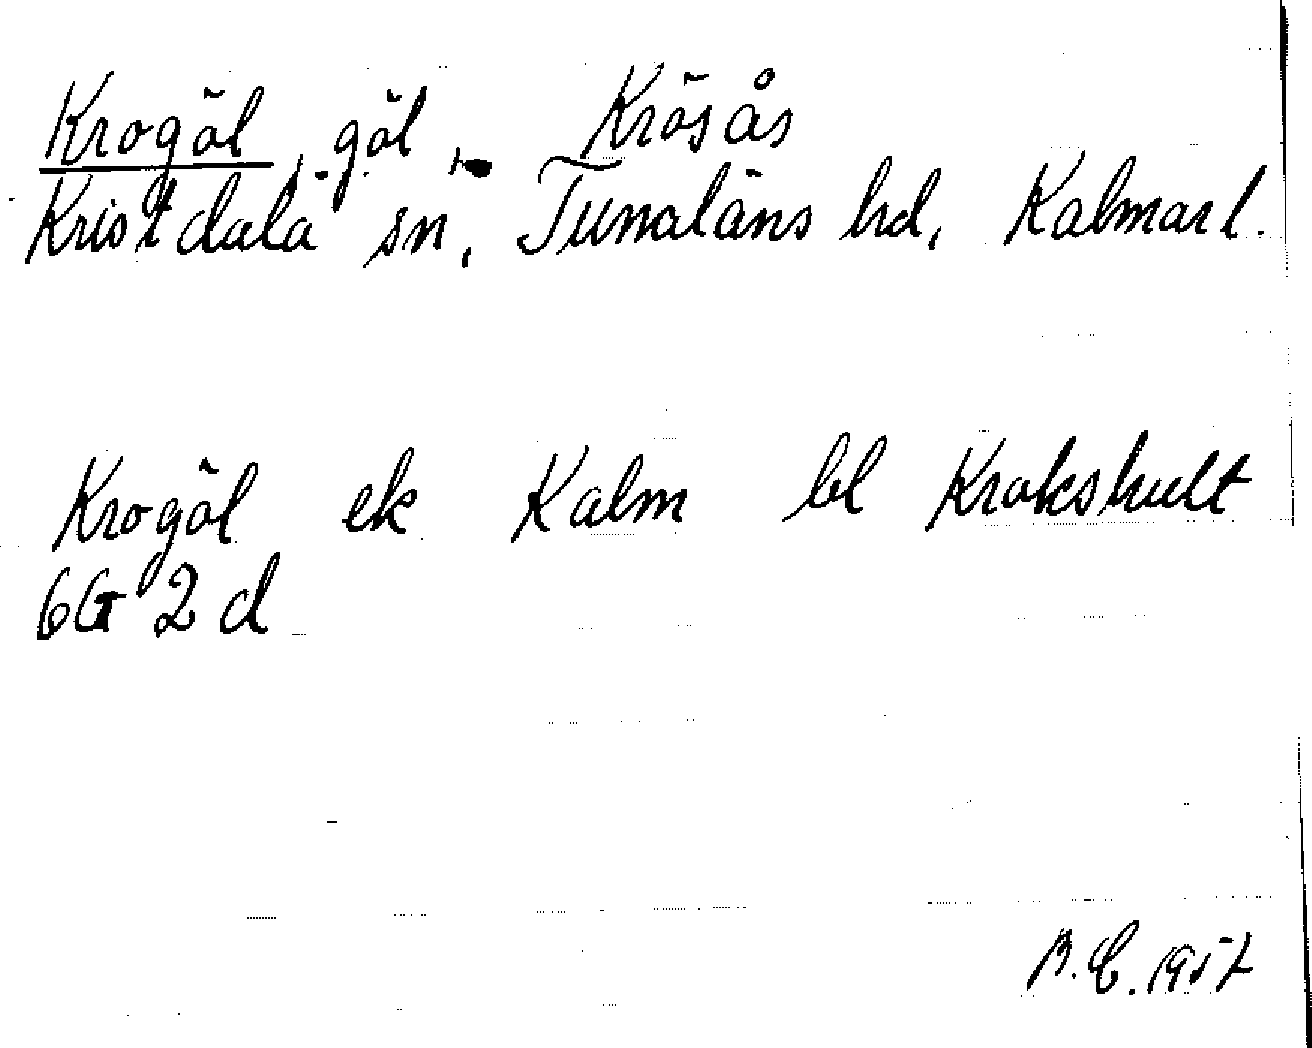 Krogöl, göl, Krösås
Kristdala sn, Tunaläns hd, Kalmar l.
Krogöl ek Kalm bl Krokshult
6G 2d
B.E. 1957